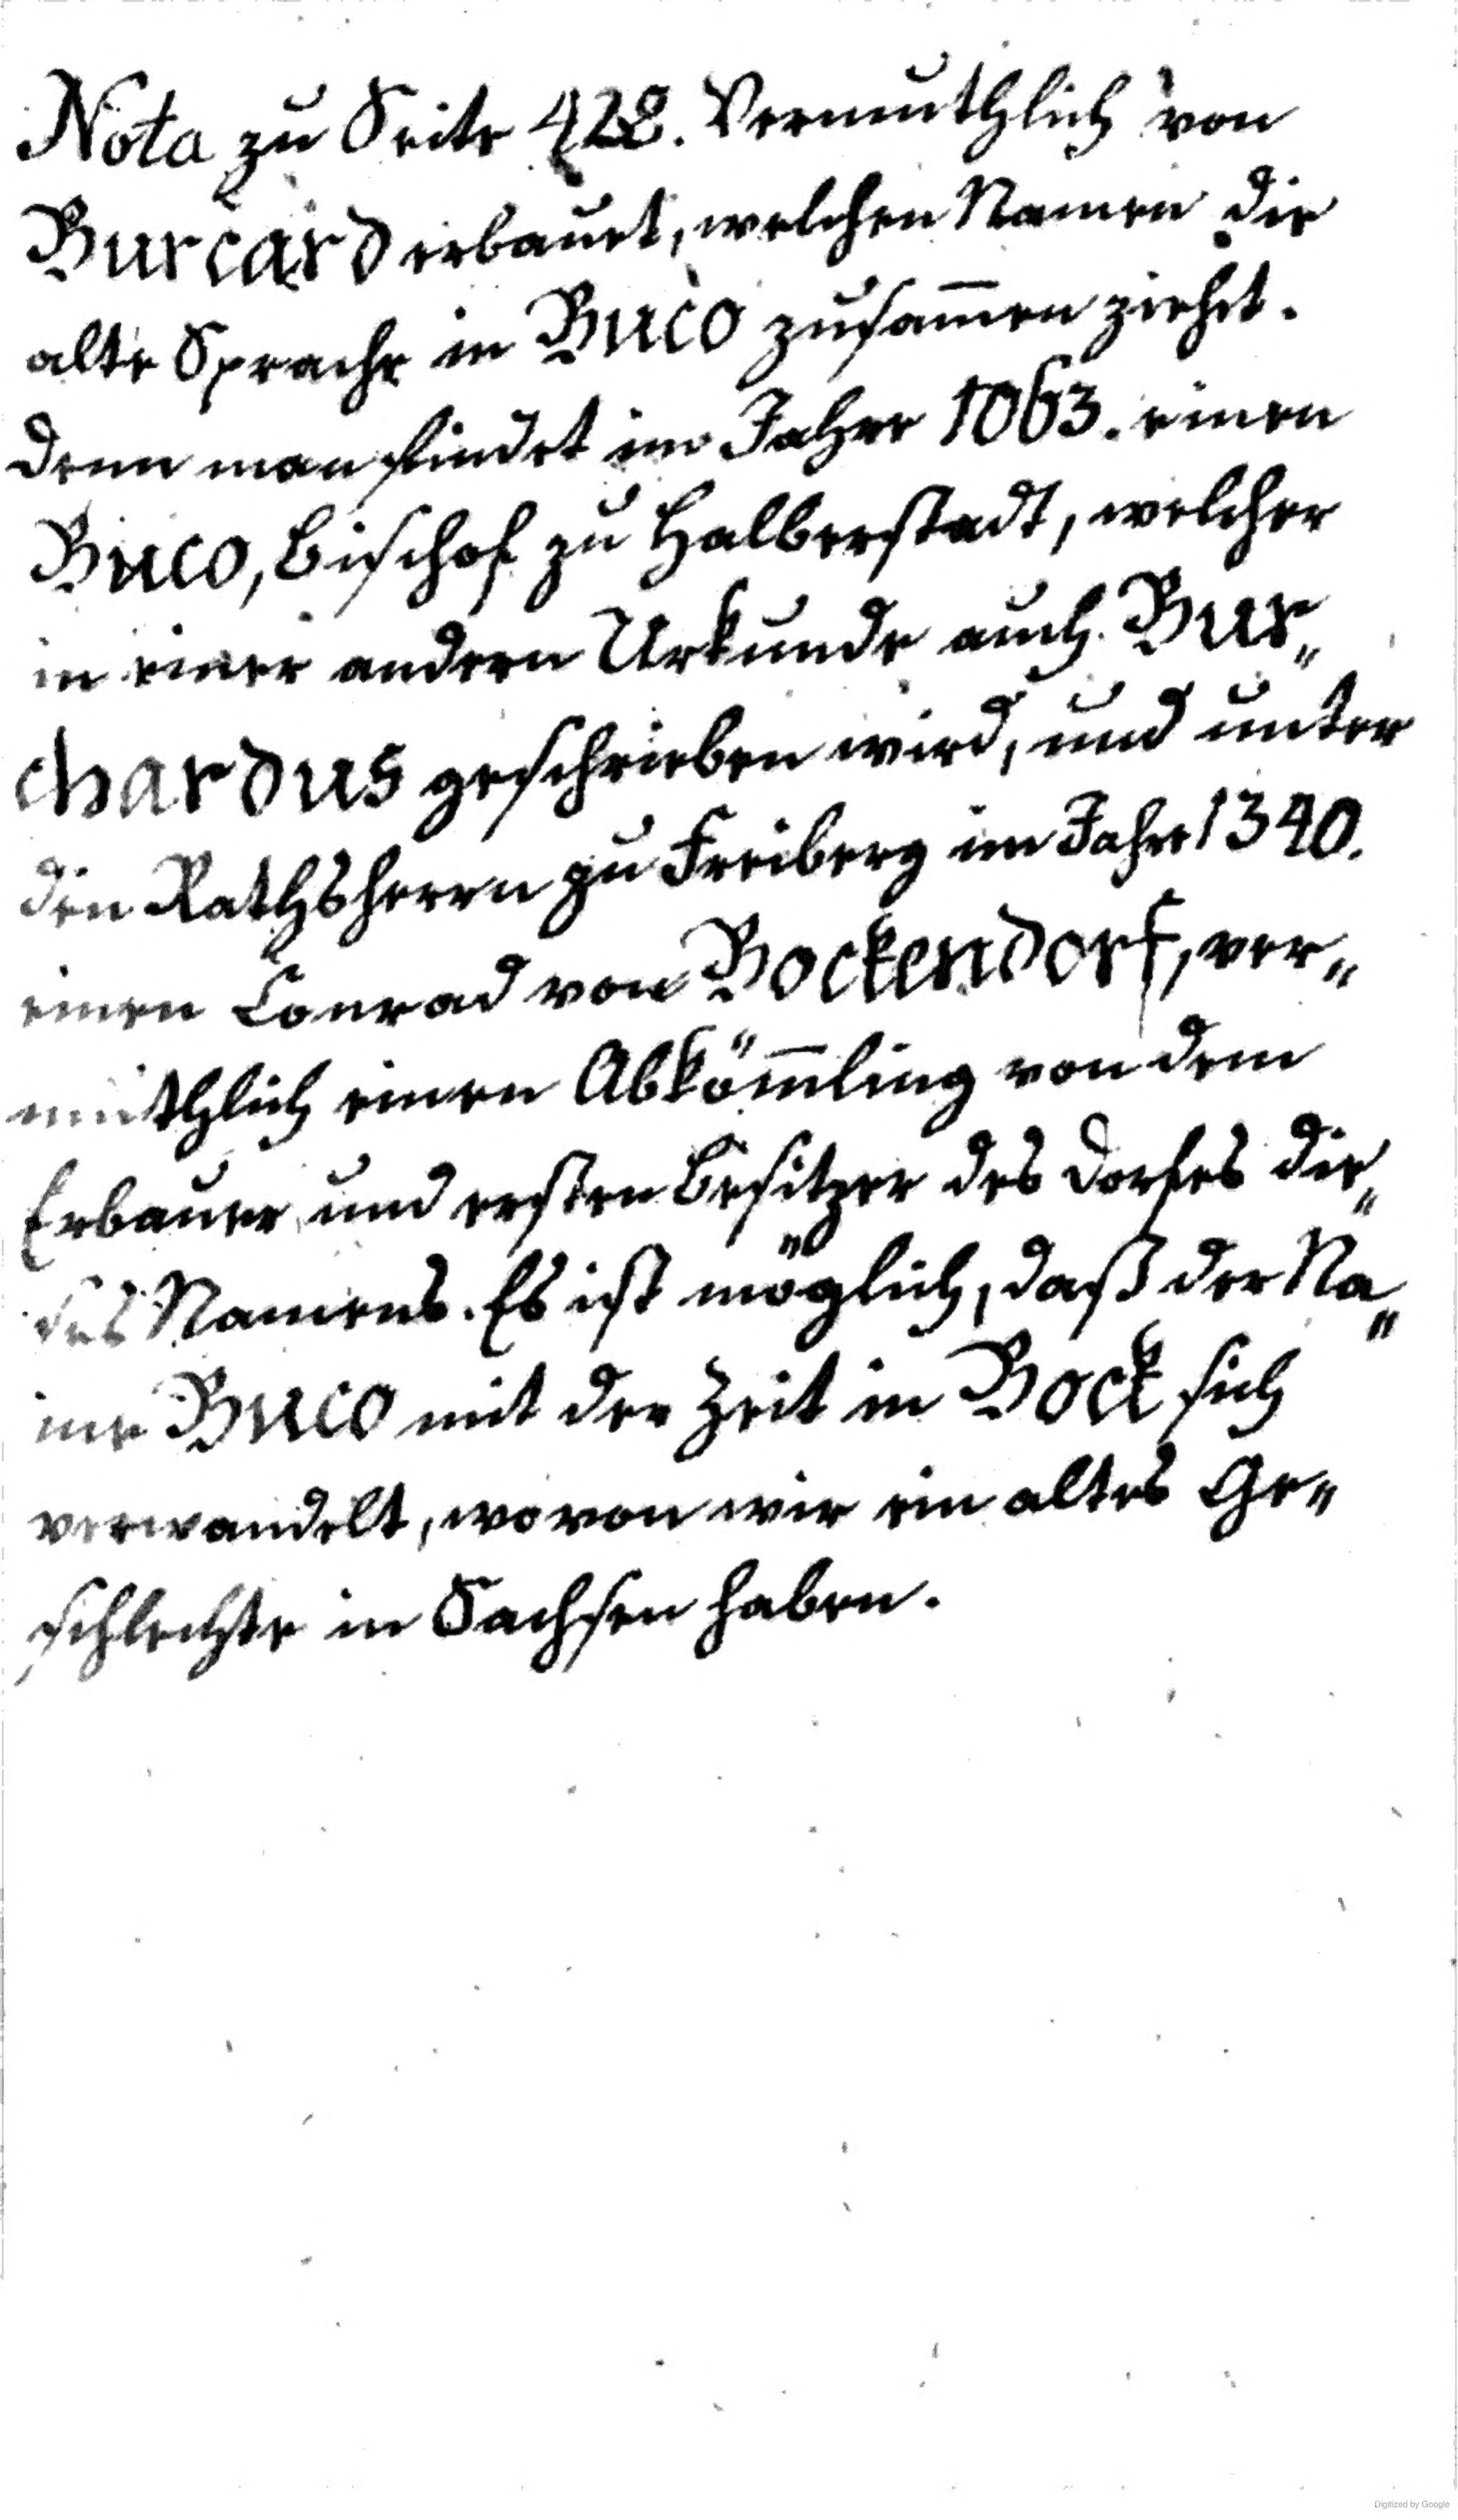 Nota zu Seite 428. Vermuthlich von
Burcard erbauet, welchen Namen die
alte Sprache in Buco zusam̄en ziehet.
Denn man findet im Jahre 1063. einen
Buco, Bischof zu Halberstadt, welcher
in einer andern Urkunde auch Bur„
chardus geschrieben wird, und unter
den Rathsherrn zu Freiberg im Jahre 1340.
einen Conrad von Bockendorf, ver„
muthlich einen Abköm̄ling von dem
Erbauer und ersten Besitzer des Dorfes die„
ses Namens. Es ist möglich, daß der Na„
me Buco mit der Zeit in Bock sich
verwandelt, wovon wir ein altes Ge„
schlechte in Sachsen haben.
Digitized by Google